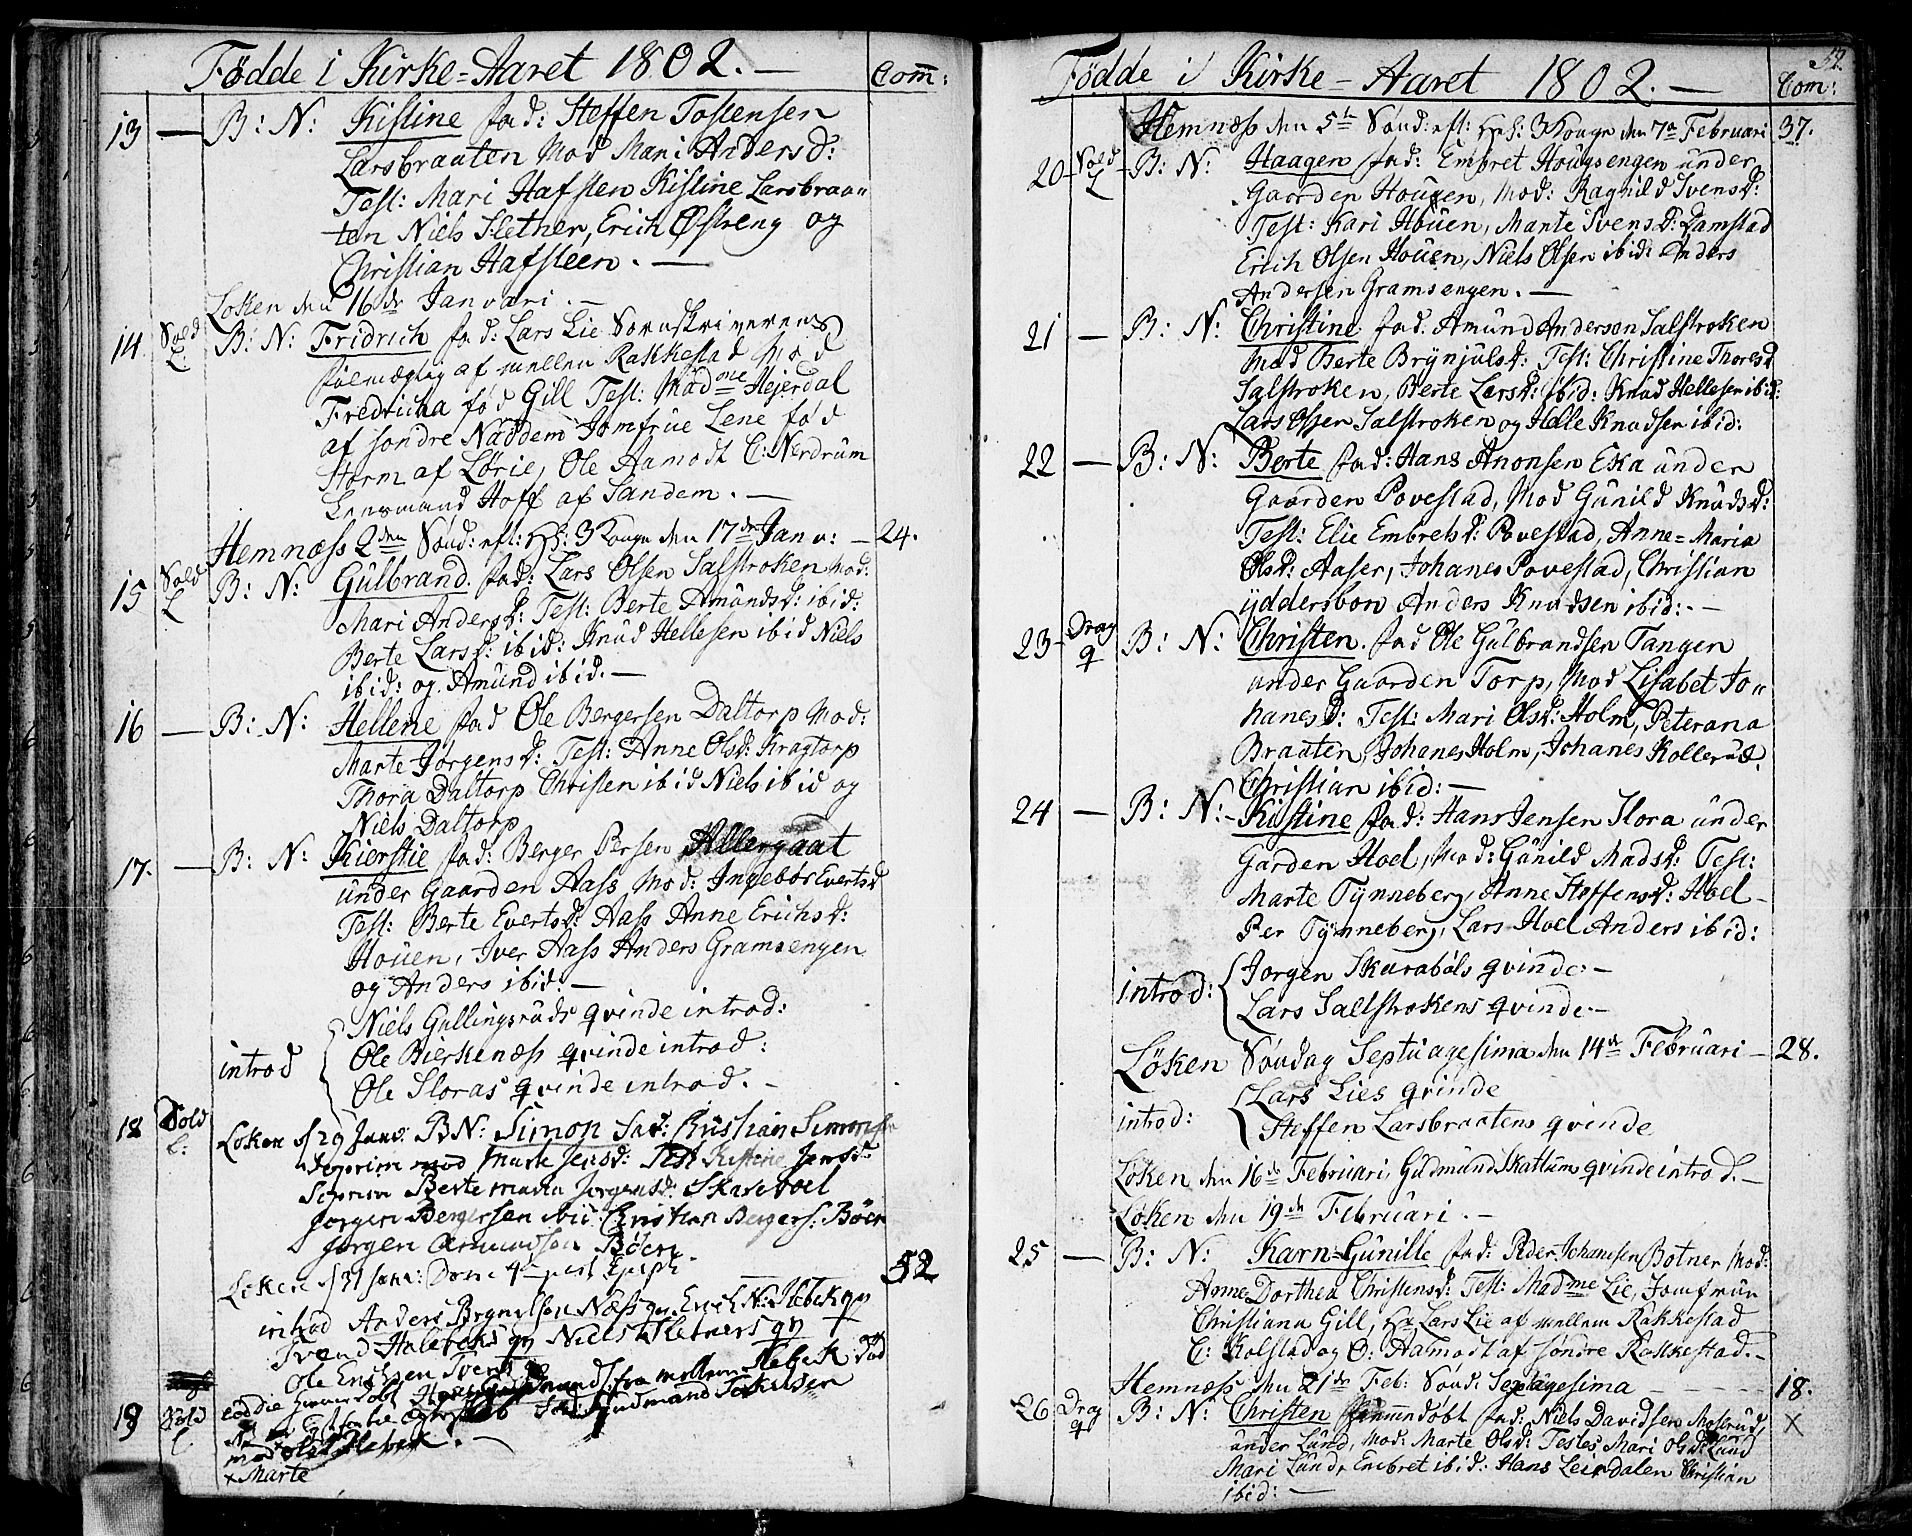 Fødde i Kirke-Aaret 1802. —
Com̄:
13 — B: N: Kistine fad: Steffen Tostensen
Larsbraaten Mod Mari Andersd:
Test: Mari Hafsten Kistine Larsbraa„
ten Niels Slether, Erich Østreng og
Christian Hafsteen. —
Løken den 16de Januari. —
14 Sold L: B: N: Fridrich fad: Lars Lie Sorenskriverens
fulmægtig af mellem Rakkestad Mod
Fredricha fød Gill Test: Madme Hejerdal
af søndre Naddem Jomfrue Lene fød
Storm af Lørie, Ole Aamodt C: Nerdrum
Lensmand Hoff af Sandem. —
Hemnæss 2den Sønd: eft: H: 3 Konge den 17de Janu: — 24.
15 Sold L B: N: Gulbrand. fad: Lars Olsen Salstroken Mod:
Mari Andersd: Test: Berte Amundsd: ibid:
Berte Larsd: ibid: Knud Hellesen ibid Niels
ibid: og Amund ibid. —
16 — B: N: Hellene fad Ole Bergersen Daltorp Mod:
Marte Jørgensd: Test: Anne Olsd: Kragtorp
Thora Daltorp Christen ibid Niels ibid og
Niels Daltorp
17. — B: N: Kierstie fad: Berger Persen Allergaat
under Gaarden Aass Mod: Ingebor Evertsd
Test: Berte Evertsd: Aass Anne Erichsd:
Houen, Iver Aass Anders Gramsengen
og Anders ibid: —
Niels Gullingsruds qvinde introd:
introd Ole Bierkenæss qvinde introd:
Ole Sloras qvinde introd. —
18 Sold L: Løken d 29 Janu: B N: Simon Fad: Kristian Simons
mod Marte Jensd: Test Kistine Jensd:
Berte Maria Jørgensd: Skarebøel
Jørgen Bergersen ibid: Christian Bergers: Böer
Jørgen Amundsen Böer.
Løken d 31 Janu: Dom: 4 post Epiph: — 52
introd Anders Brynilsen Næss qv Erich N: Slebek qv
Svend Halebeks qv Niels Sletners qv
Ole Erichsen Tvend
19 Sold L
fra mellem Slebek
Gudmand
mod Olsd Slebek. —
x Marte
Fødde i Kirke-Aaret 1802. —
52.
Com:
Hemnæss den 5te Sønd: eft: H: 3 Konge den 7de Februari 37.
20 Sold L B: N: Haagen fad: Embret Hougsengen under
Gaarden Houen, Mod: Ragnild Ivensd:
Test: Kari Houen, Marte Svensd: Lamstad
Erich Olsen Houen, Niels Olsen ibid: Anders
Andersen Gramsengen. —
21 — B: N: Christine fad: Amund Anderson Salstroken
Mod Berte Brynjulsd: Test: Christine Thoresd
Salstroken, Berte Larsd: ibid: Knud Hellesen ibid:
Lars Olsen Salstroken og Helle Knudsen ibid:
22 — B: N: Berte fad: Hans Anonsen Eka under
Gaarden Povestad, Mod Gunild Knudsd:
Test: Elie Embretsd: Povestad, Anne=Maria
Olsd: Aaser, Johanes Povestad, Christian
ydderbon Anders Knudsen ibid: —
23 Drag q B: N: Christen. fad Ole Gulbrandsen Tangen
under Gaarden Torp, Mod Lisabet Jo„
hanesd: Test: Mari Olsd: Holm, Peterana
Braaten, Johanes Holm, Johanes Kollerud.
Christian ibid: —
24 — B: N: Kistine fad: Hans Jensen Slora under
Garden Hoel, Mod: Gunild Madsd: Test:
Marte Tynneberg, Anne Steffensd: Hoel
Per Tynneberg, Lars Hoel Anders ibid:
introd: Jørgen Skarabøls qvinde: —
Lars Sallstrokens qvinde. —
Løken Søndag Septuagesima den 14de Februari — 28.
introd: Lars Lies qvinde
Steffen Larsbraatens qvinde
Løken den 16de Februari, Gudmund Skattum qvinde introd. —
Løken den 19de Februari. —
25 — B: N: Karn=Gunille fad: Peder Johanesen Botner Mod:
Anne Dorthea Christensd: Test: Madme Lie, Jomfrue
Christiana Gill, Hr Lars Lie af mellem Rakkestad
C: Kolstad og O: Aamodt af søndre Rakkestad. —
Hemnæss den 21de Feb: Sønd: Sexagesima — 18.
26 Drag q B: N: Christen hiemmedøbt fad: Niels Davidsen Moserud, X
under Lund, Mod: Marte Olsd: Testes Mari Olsd: Lund
Mari Lund, Embret ibid: Hans Leirdalen Christian
ibid: —